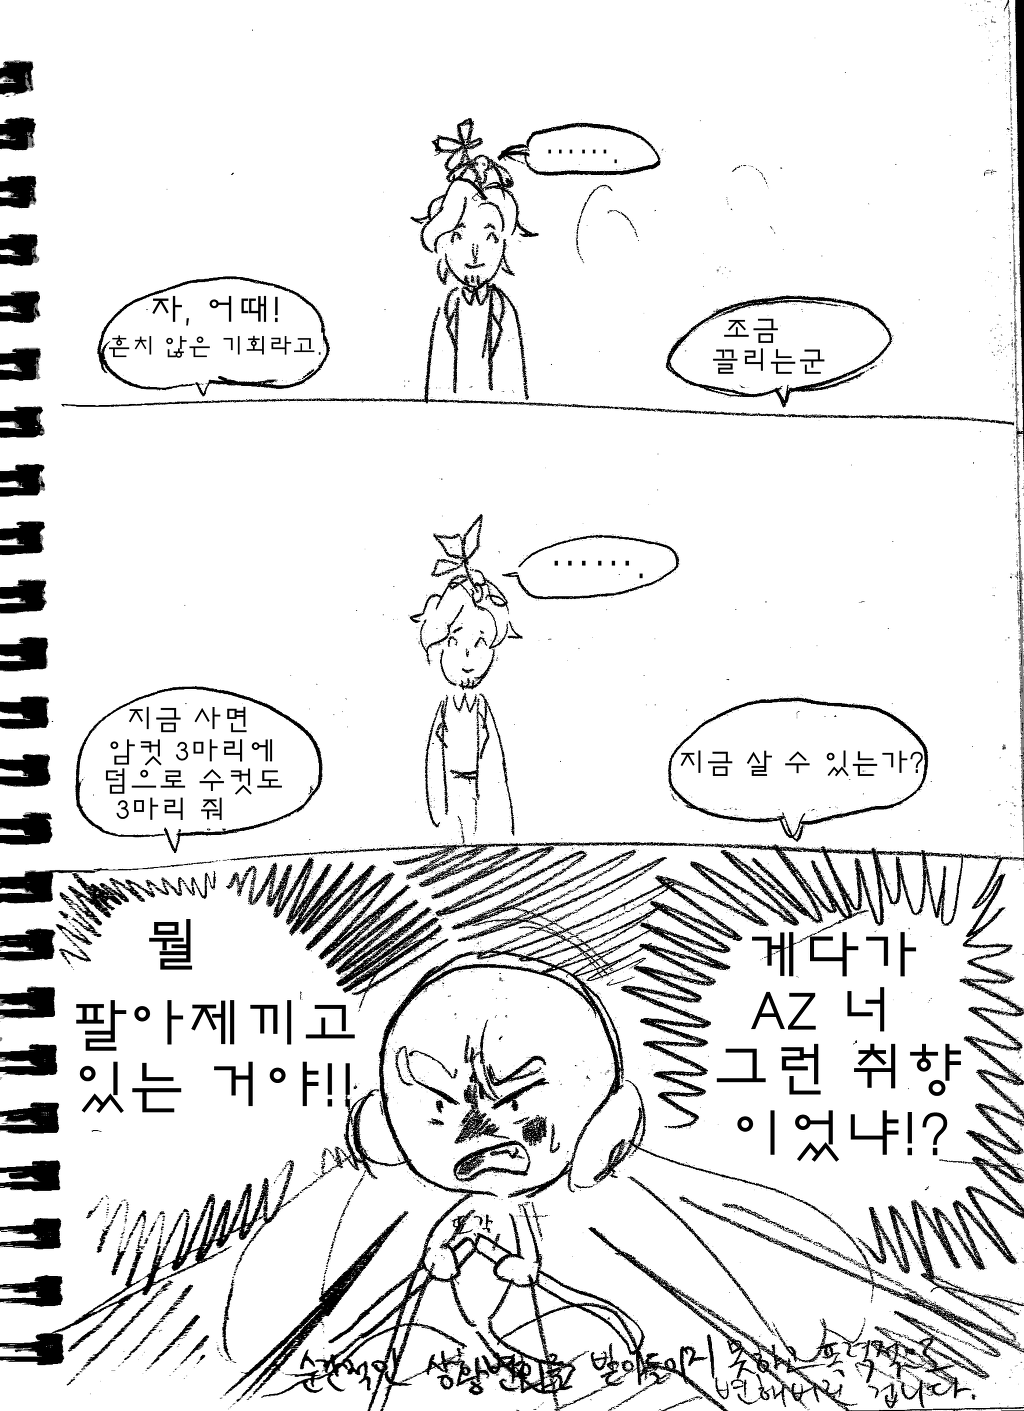 .......
자, 어때!
흔치 않은 기회라고.
조금
끌리는군
.......
지금 사면
암컷 3마리에
덤으로 수컷도
3마리 줘
지금 살 수 있는가?
뭘
팔아제끼고
있는 거야!!
게다가
AZ 너
그런 취향
이었냐!?
뽀각
순간적인 상황변화를 받아들이지 못하고 폭력적으로
변해버린 겁니다.